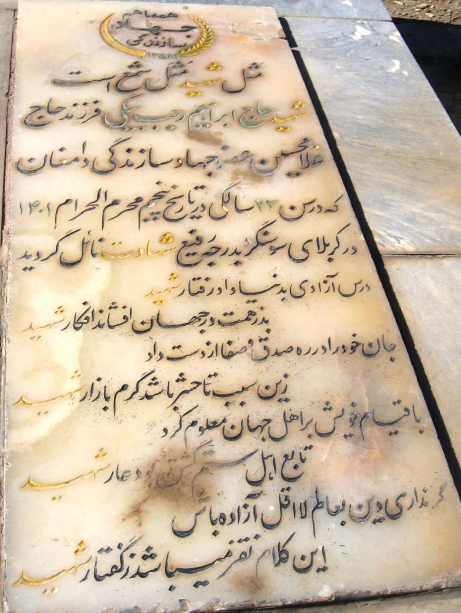 همه باهم
جهاد
سازندگی
۱۳۵۸
مثل شهید مثل شمع است
شهید حاج ابراهیم رجب بیکی فرزند حاج
غلامحسین عضو جهاد سازندگی دامغان
که در سن ۲۳ سالگی در تاریخ پنجم محرم الحرام ۱۴۰۱
در کربلای سوسنگرد بدرجه رفیع شهادت نائل گردید
درس آزادی بدنیا داد رفتار شهید
بذر همت در جهان افشاند افکار شهید
جان خود را در ره صدق و صفا از دست داد
زین سبب تا حشر باشد گرم بازار شهید
با قیام خویش بر اهل جهان معلوم کرد
تابع اهل ستم گشتن بود عار شهید
گر نداری دین بعالم لااقل آزاده باش
این کلام نغز میباشد ز گفتار شهید